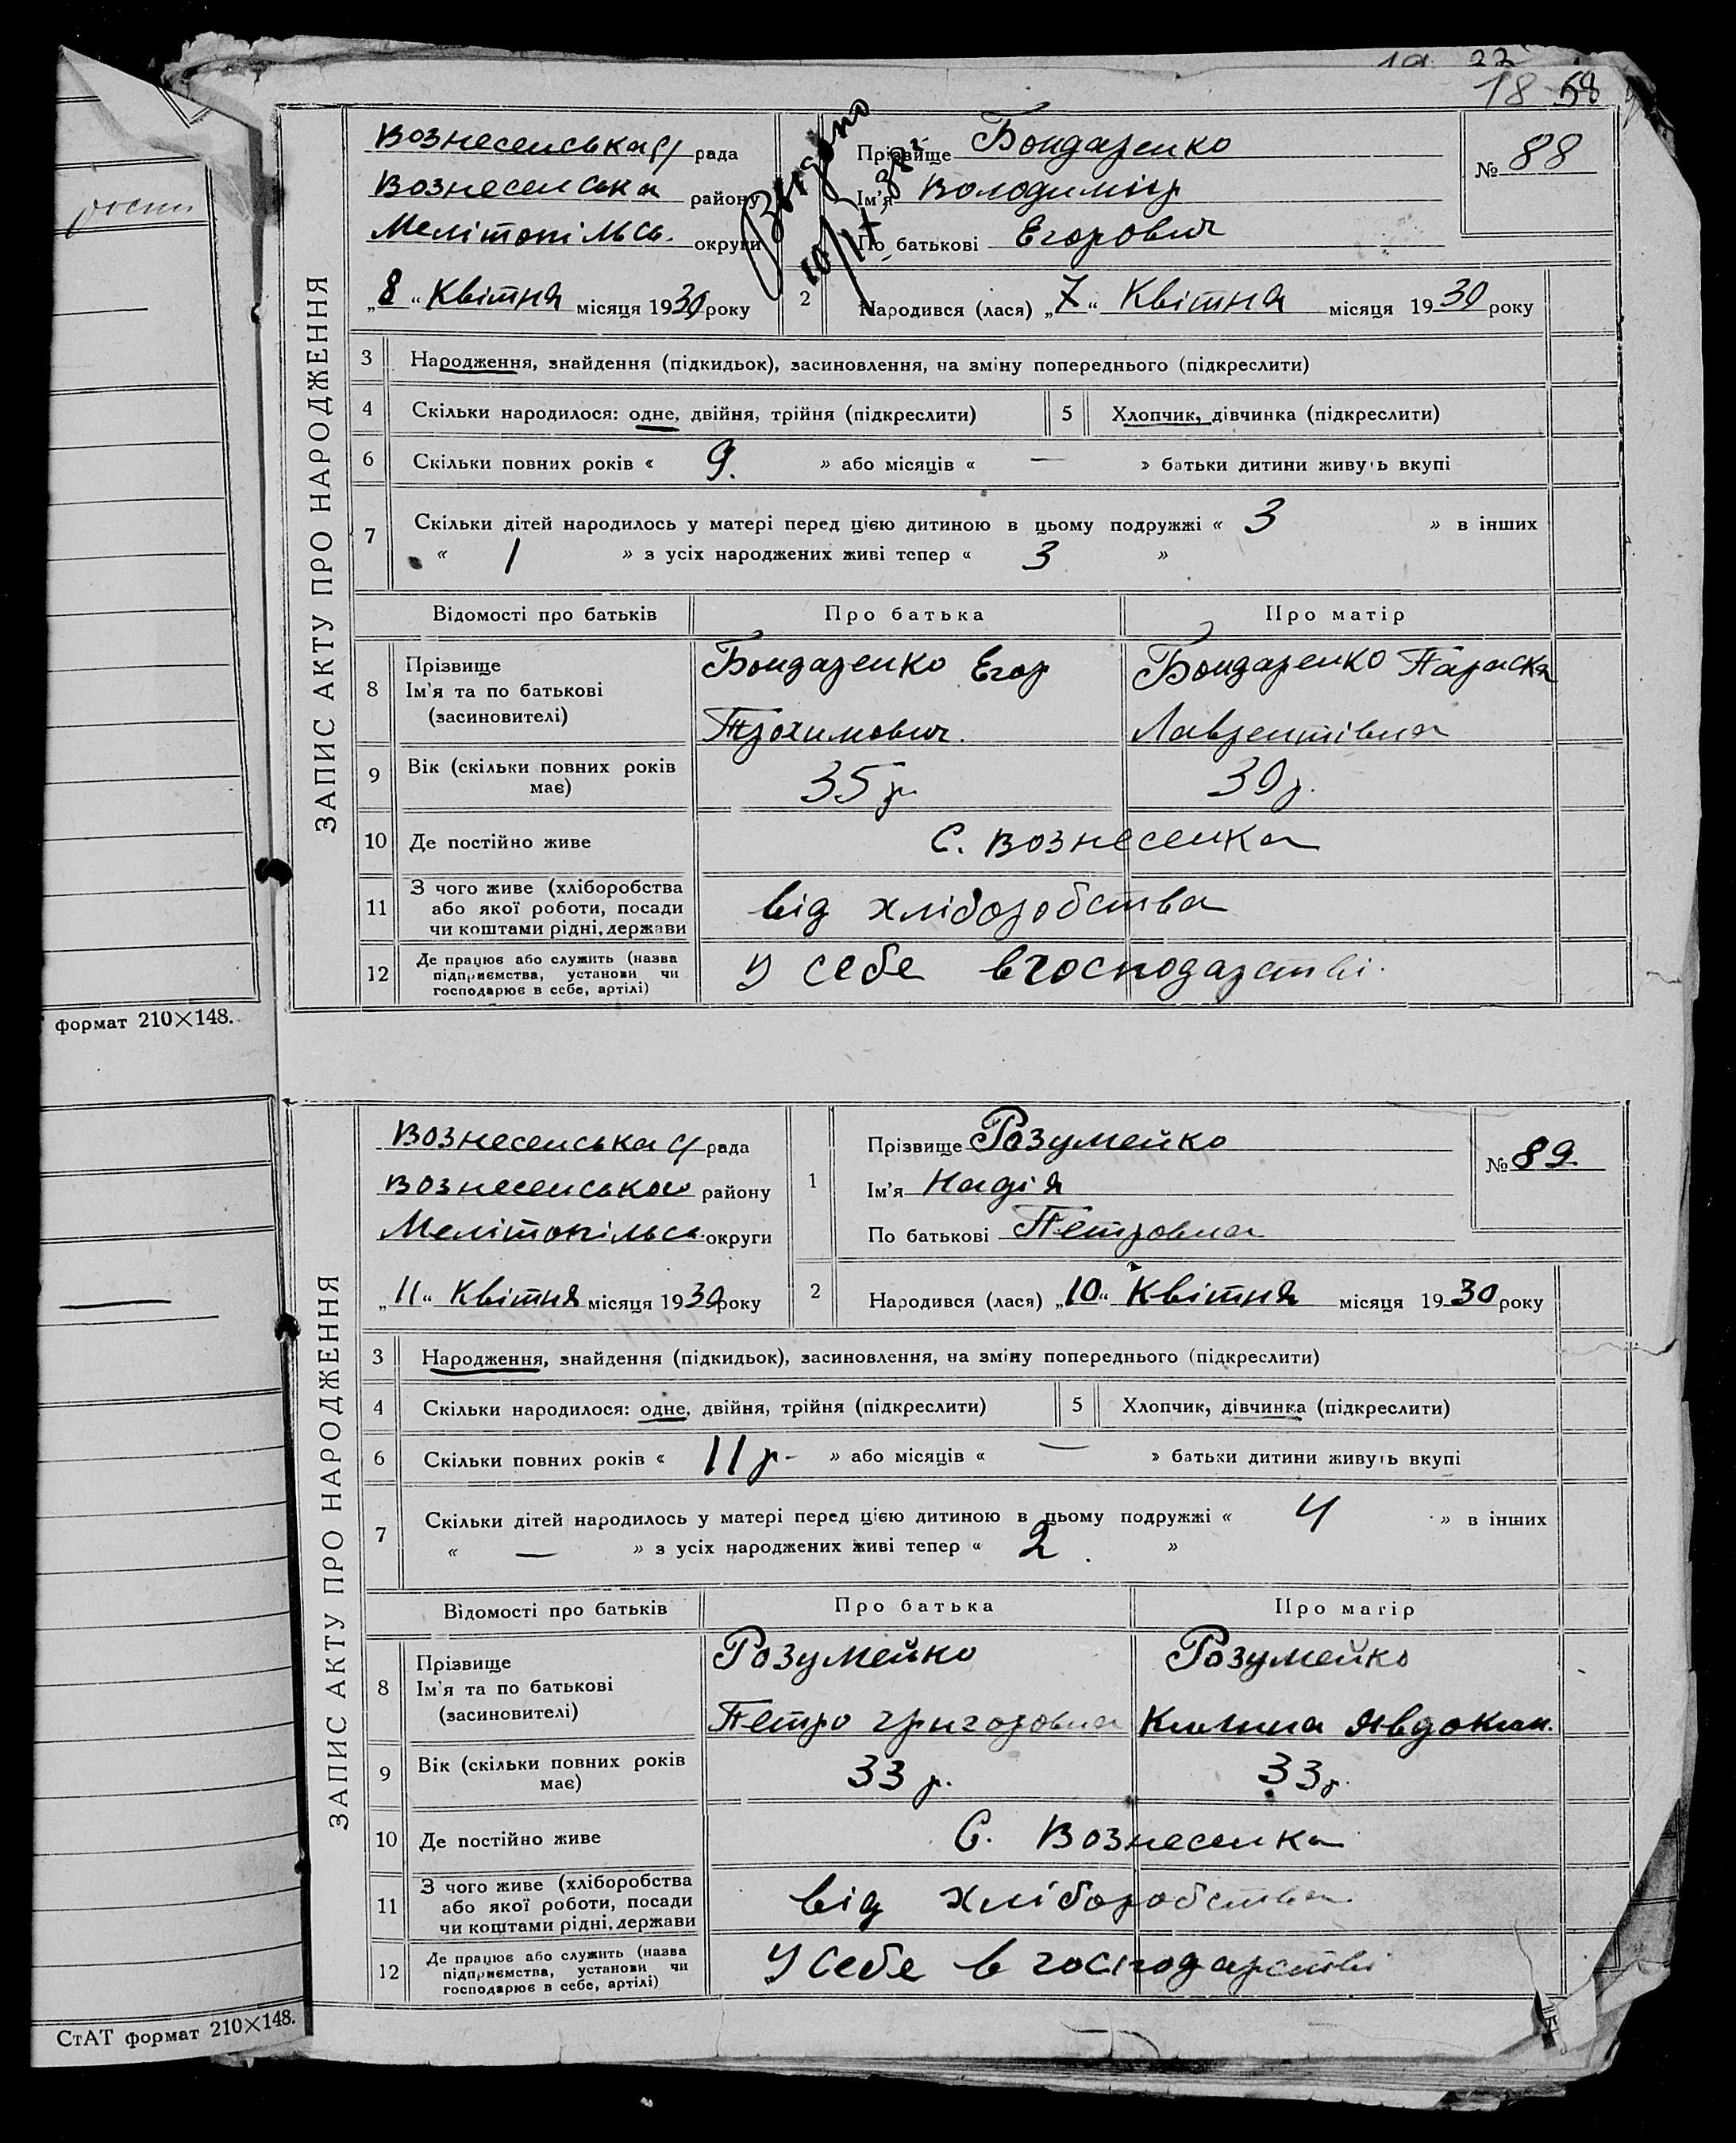 18 58
рости
формат 210×148.
СтАТ формат 210×148.
ЗАПИС АКТУ ПРО НАРОДЖЕННЯ
Вознесенська рада
Вознесенська району
Мелітопільсь. округи
„8“ Квітня місяця 1930 року
Видано
10/IX 38г
Прізвище Бондаренко
Ім'я Володимір
По батькові Егорович
№ 88
2 Народився (лася) „7“ Квітня місяця 1930 року
3 Народження, знайдення (підкидьок), засиновлення, на зміну попереднього (підкреслити)
4 Скільки народилося: одне, двійня, трійня (підкреслити) 5 Хлопчик, дівчинка (підкреслити)
6 Скільки повних років « 9. » або місяців « — » батьки дитини живуть вкупі
7 Скільки дітей народилось у матері перед цією дитиною в цьому подружжі « 3 » в інших
« 1 » з усіх народжених живі тепер « 3 »
Відомості про батьків Про батька Про матір
8 Прізвище Ім'я та по батькові (засиновителі)
Бондаренко Егор Бондаренко Параска
Трохимович. Лаврентівна
9 Вік (скільки повних років має) 35 р. 39 р.
10 Де постійно живе С. Вознесенка
11 З чого живе (хліборобства
або якої роботи, посади
чи коштами рідні, держави
від хліборобства
12 Де працює або служить (назва
підприємства, установи чи
господарює в себе, артілі)
У себе в господарстві.
ЗАПИС АКТУ ПРО НАРОДЖЕННЯ
Вознесенська рада
Вознесенсько району
Мелітопільсь. округи
„11“ Квітня місяця 1930 року
1 Прізвище Розумейко
Ім'я Надія
По батькові Петровна
№ 89.
2 Народився (лася) „10“ Квітня місяця 1930 року
3 Народження, знайдення (підкидьок), засиновлення, на зміну попереднього (підкреслити)
4 Скільки народилося: одне, двійня, трійня (підкреслити) 5 Хлопчик, дівчинка (підкреслити)
6 Скільки повних років « 11 р- » або місяців « — » батьки дитини живуть вкупі
7 Скільки дітей народилось у матері перед цією дитиною в цьому подружжі « 4 » в інших
« — » з усіх народжених живі тепер « 2 »
Відомості про батьків Про батька Про матір
8 Прізвище Ім'я та по батькові (засиновителі)
Розумейко Розумейко
Петро Григоровна Явдоким.
9 Вік (скільки повних років має) 33 р. 33 р.
10 Де постійно живе С. Вознесенка
11 З чого живе (хліборобства
або якої роботи, посади
чи коштами рідні, держави
від хліборобства
12 Де працює або служить (назва
підприємства, установи чи
господарює в себе, артілі)
У себе в господарстві